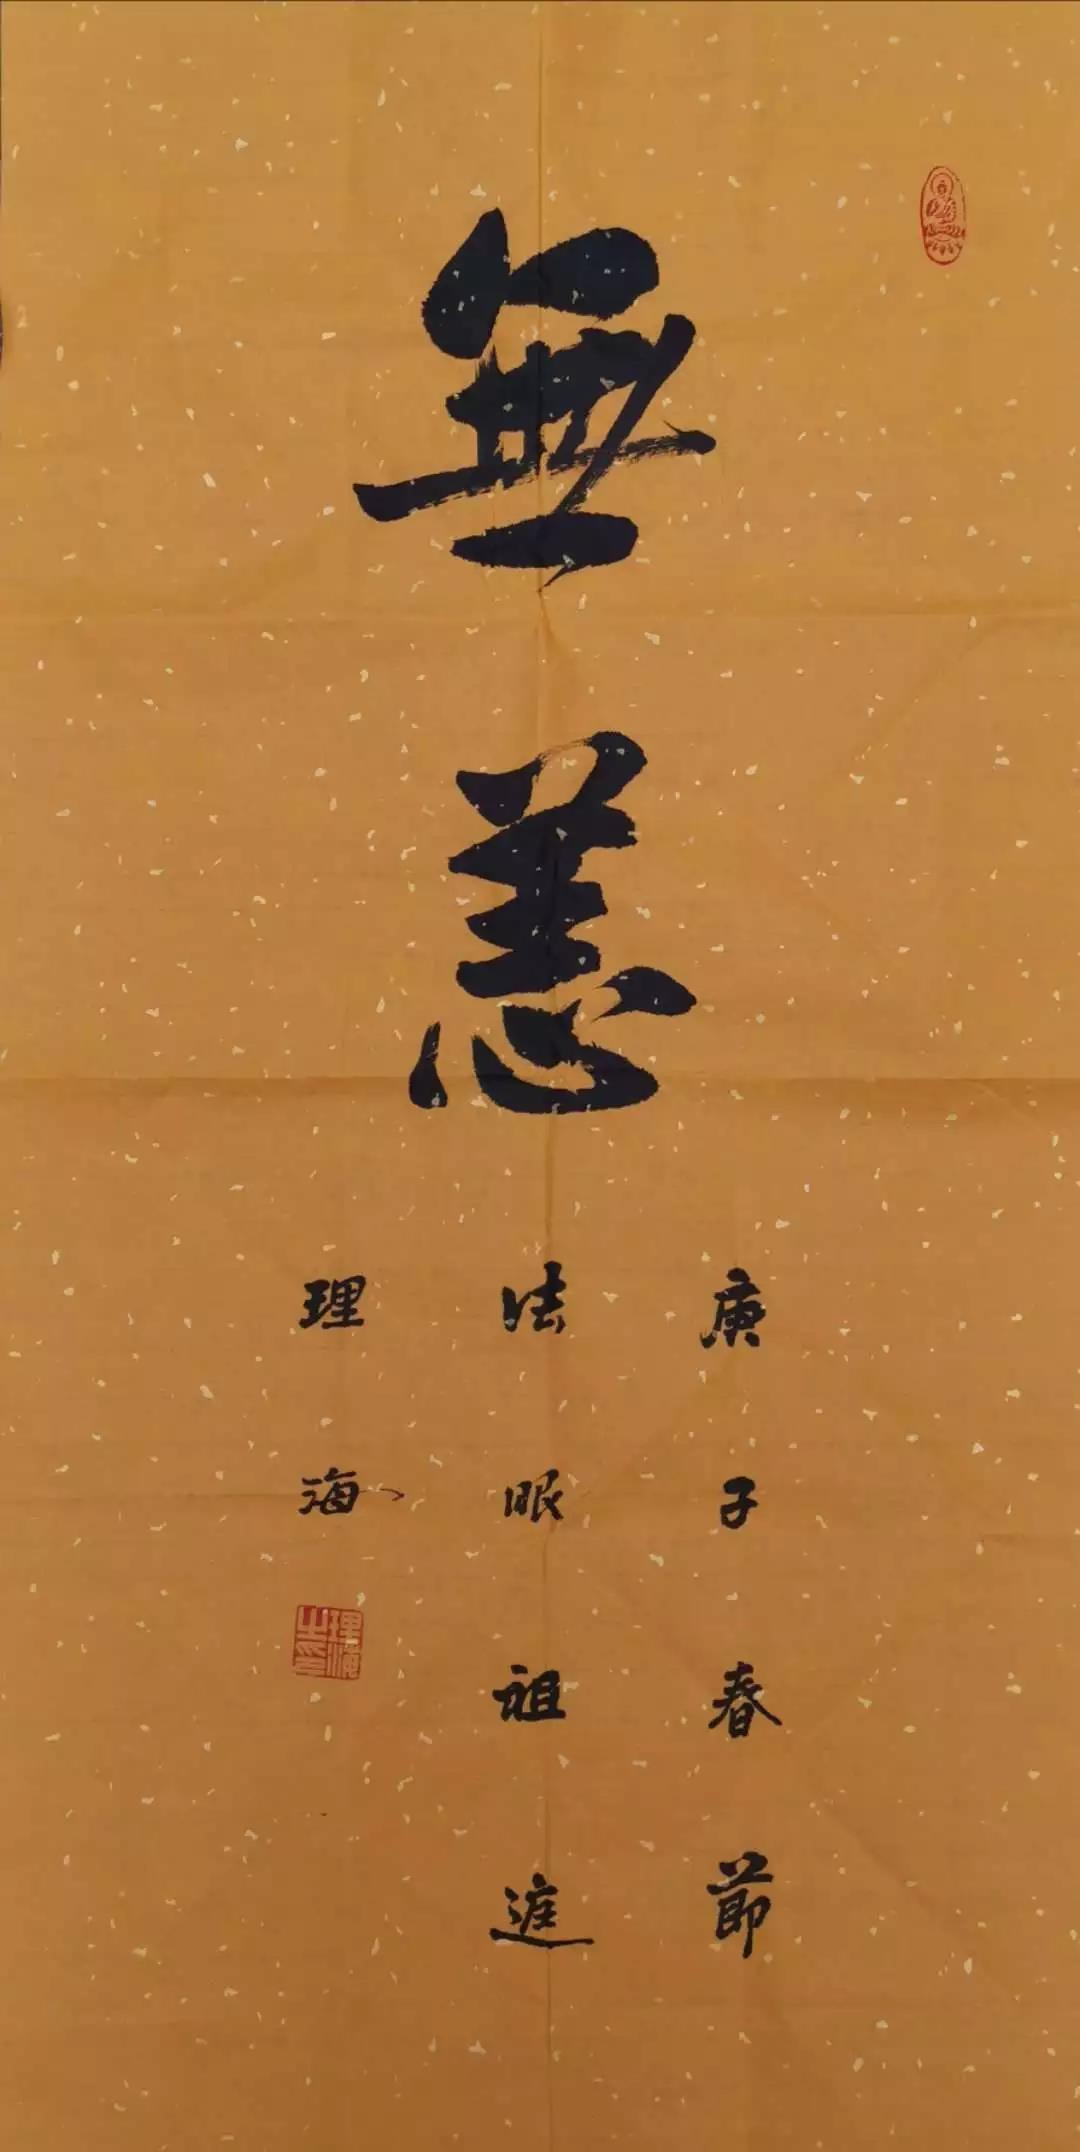 無恙
庚子春節
法眼祖庭
理海
理海之印